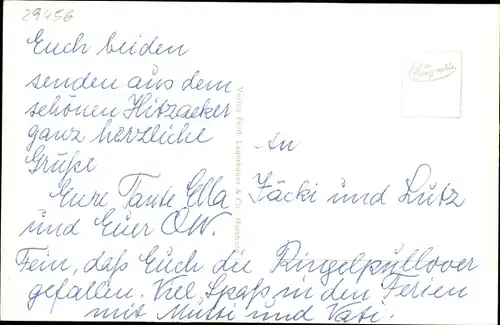 29456
Euch beiden
senden aus dem
schönen Hitzacker
ganz herzliche
Grüße
Eure Tante Ella
und Euer O.W.
An
Jäcki und Lutz
Fein, daß Euch die Ringelpullover
gefallen. Viel Spaß in den Ferien
mit Mutti und Vati.
Verlag Ferd.
& Co., Hamburg
Echte